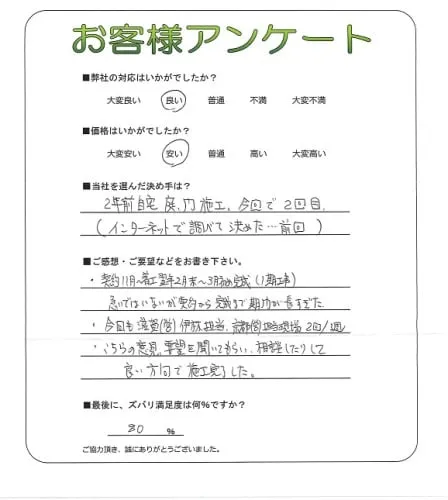 お客様アンケート
■弊社の対応はいかがでしたか?
大変良い 良い 普通 不満 大変不満
■価格はいかがでしたか?
大変安い 安い 普通 高い 大変高い
■当社を選んだ決め手は?
2年前自宅庭、門施工、今回で2回目.
(インターネットで調べて決めた…前回)
■ご感想・ご要望などをお書き下さい。
・契約11月〜着工翌年2月末〜3月初完成(1期工事)
急いではいないが契約から完成まで期間が長すぎた.
・今回も滋賀(営)伊藤担当、京都(営)担当現場2回/週
・こちらの意見、要望を聞いてもらい、相談したりして
良い方向で施工完了した。
■最後に、ズバリ満足度は何%ですか?
80 %
ご協力頂き、誠にありがとうございました。